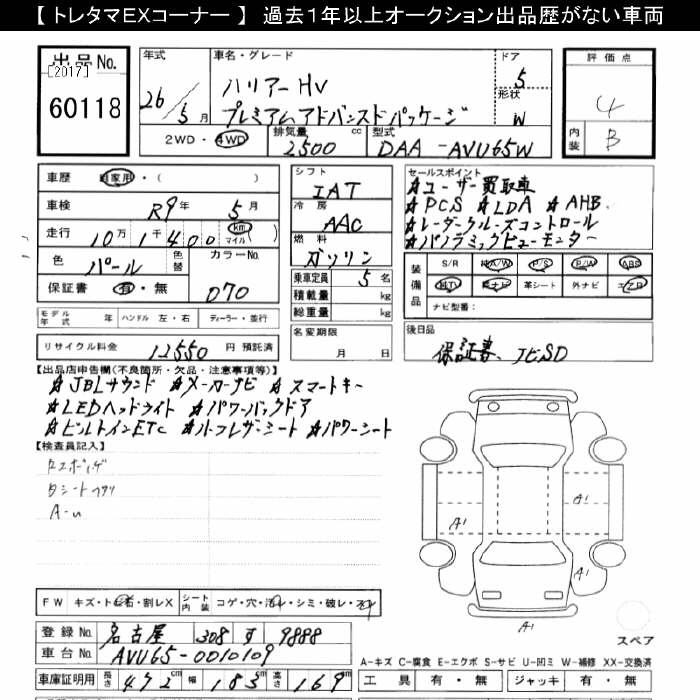 【 トレタマEXコーナー 】 過去1年以上オークション出品歴がない車両
出品No. [2017] 60118
年式 26/5月
車名・グレード ハリアーHV
プレミアムアドバンスドパッケージ
ドア 5
形状 W
評価点 4
内装 B
2WD・4WD 排気量 2500 cc 型式 DAA-AVU65W
車歴 自家用・( )
車検 R9年 5月
走行 10万1千400 km マイル
色 パール 色替 カラーNo.
保証書 有・無 070
モデル年式 年 ハンドル 左・右 ディーラー・並行
リサイクル料金 12550 円 預託済
シフト IAT
冷房 AAC
燃料 ガソリン
乗車定員 5 名
積載量 kg
総重量 kg
名変期限 月 日
セールスポイント
☆ユーザー買取車
☆PCS ☆LDA ☆AHB
☆レーダークルーズコントロール
☆パノラミックビューモニター
装備品 S/R 純A/W P/S P/W ABS
純TV 純ナビ 革シート 外ナビ エアB
ナビ型番:
後日品
保証書、取SD
【出品店申告欄(不良箇所・欠品・注意事項等)】
☆JBLサウンド ☆メーカーナビ ☆スマートキー
☆LEDヘッドライト ☆パワーバックドア
☆ビルトインETC ☆ハーフレザーシート ☆パワーシート
【検査員記入】
A-u
A1
A1
A1
A1
FW キズ・トビ石・割レX シート内装 コゲ・穴・汚レ・シミ・破レ・スレ
登録No. 名古屋 308 す 9888
車台No. AVU65-0010109
車庫証明用 長さ 472 cm 幅 183 cm 高さ 169 cm
スペア
A-キズ C-腐食 E-エクボ S-サビ U-凹ミ W-補修 XX-交換済
工具 有・無 ジャッキ 有・無